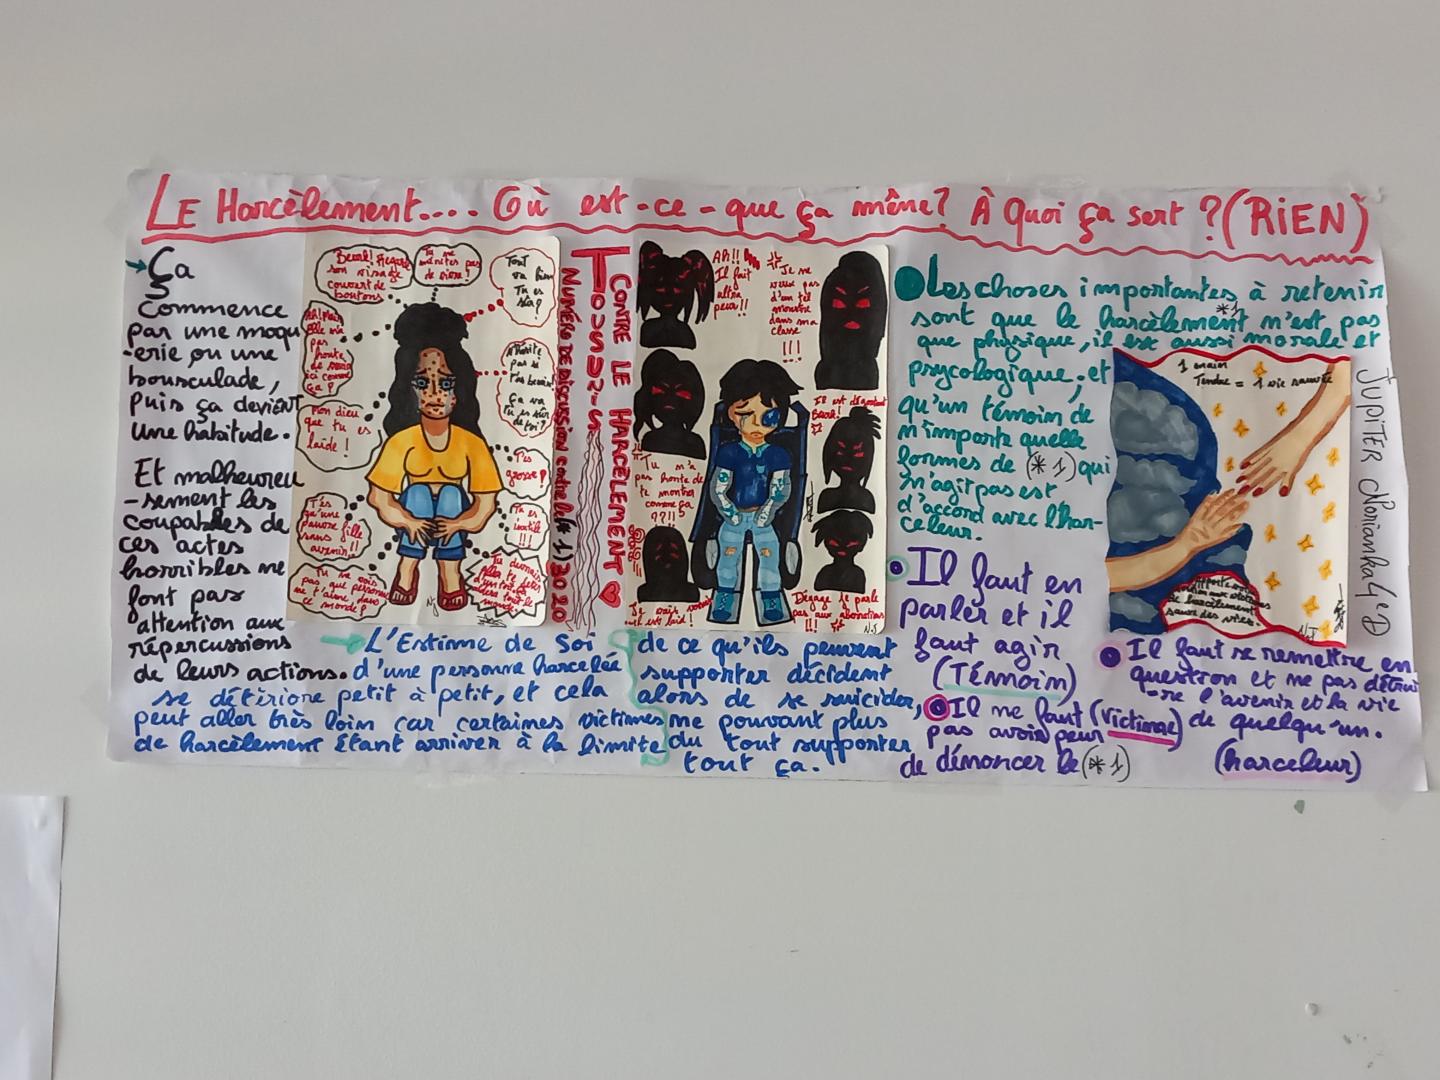 LE Harcèlement.... Où est-ce-que ça mène? À quoi ça sert ? (RIEN)
Ça
Commence
par une moqu
-erie ou une
bousculade,
puis ça devient
une habitude.
Et malheureu
-sement les
coupables de
ces actes
horribles ne
font pas
attention aux
répercussions
de leurs actions.
Beurk! Regarde
son visage
couvert de
boutons
Tu ne
mérites pas
de vivre!
Tout
va bien
Tu es
sûr?
pas
honte
ça?
Mon dieu
que tu es
laide!
N'hésite
pas si
t'as besoin
Ça va
de toi?
T'es
grosse!
T'es
qu'une
pauvre fille
sans
avenir!!
Tu es
inutile
!!!
Tu ne vois
pas que personne
ne t'aime dans
ce monde?
TOUS UNIS
CONTRE LE HARCÈLEMENT
NUMÉRO DE DISCUSSION contre le(*1) 30 20
Ah!!
Il fait
ultra
peur!!
Je ne
veux pas
d'un tel
monstre
dans ma
classe
!!!
Il est dégoutant
Beurk!
Tu n'a
pas honte de
te montrer
comme ça
??!!
Je vais vomir
il est laid!
Dégage je parle
pas aux aberrations
!!!
N.J
L'Estime de Soi
d'une personne harcelée
se détériore petit à petit, et cela
peut aller très loin car certaines victimes
de harcèlement étant arriver à la limite
de ce qu'ils peuvent
supporter décident
alors de se suicider,
ne pouvant plus
du tout supporter
tout ça.
Les choses importantes à retenir
sont que le harcèlement *1 n'est pas
que physique, il est aussi morale et
psycologique, et
qu'un témoin de
n'importe quelle
formes de (*1) qui
n'agit pas est
d'accord avec l'har-
celeur.
1 main
Tendue = 1 vie sauvée
le harcèlement
sauve des vies.
N.J
JUPITER Norianka 4eD
Il faut en
parler et il
faut agir
(Témoin)
Il ne faut (Victime)
pas avoir peur
de dénoncer le (*1)
Il faut se remettre en
question et ne pas détrui
-re l'avenir et la vie
de quelqu'un.
(harceleur)